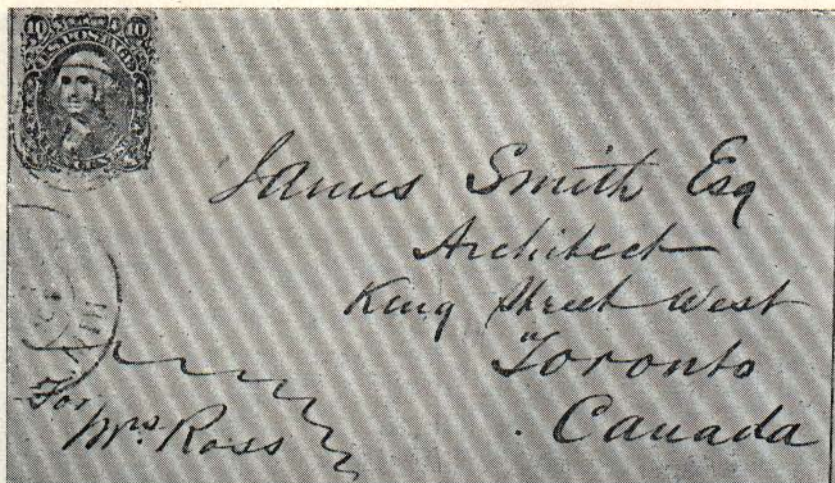 10 10
U.S. POSTAGE
James Smith Esq
Architect
King Street West
Toronto
Canada
For
Mrs. Ross